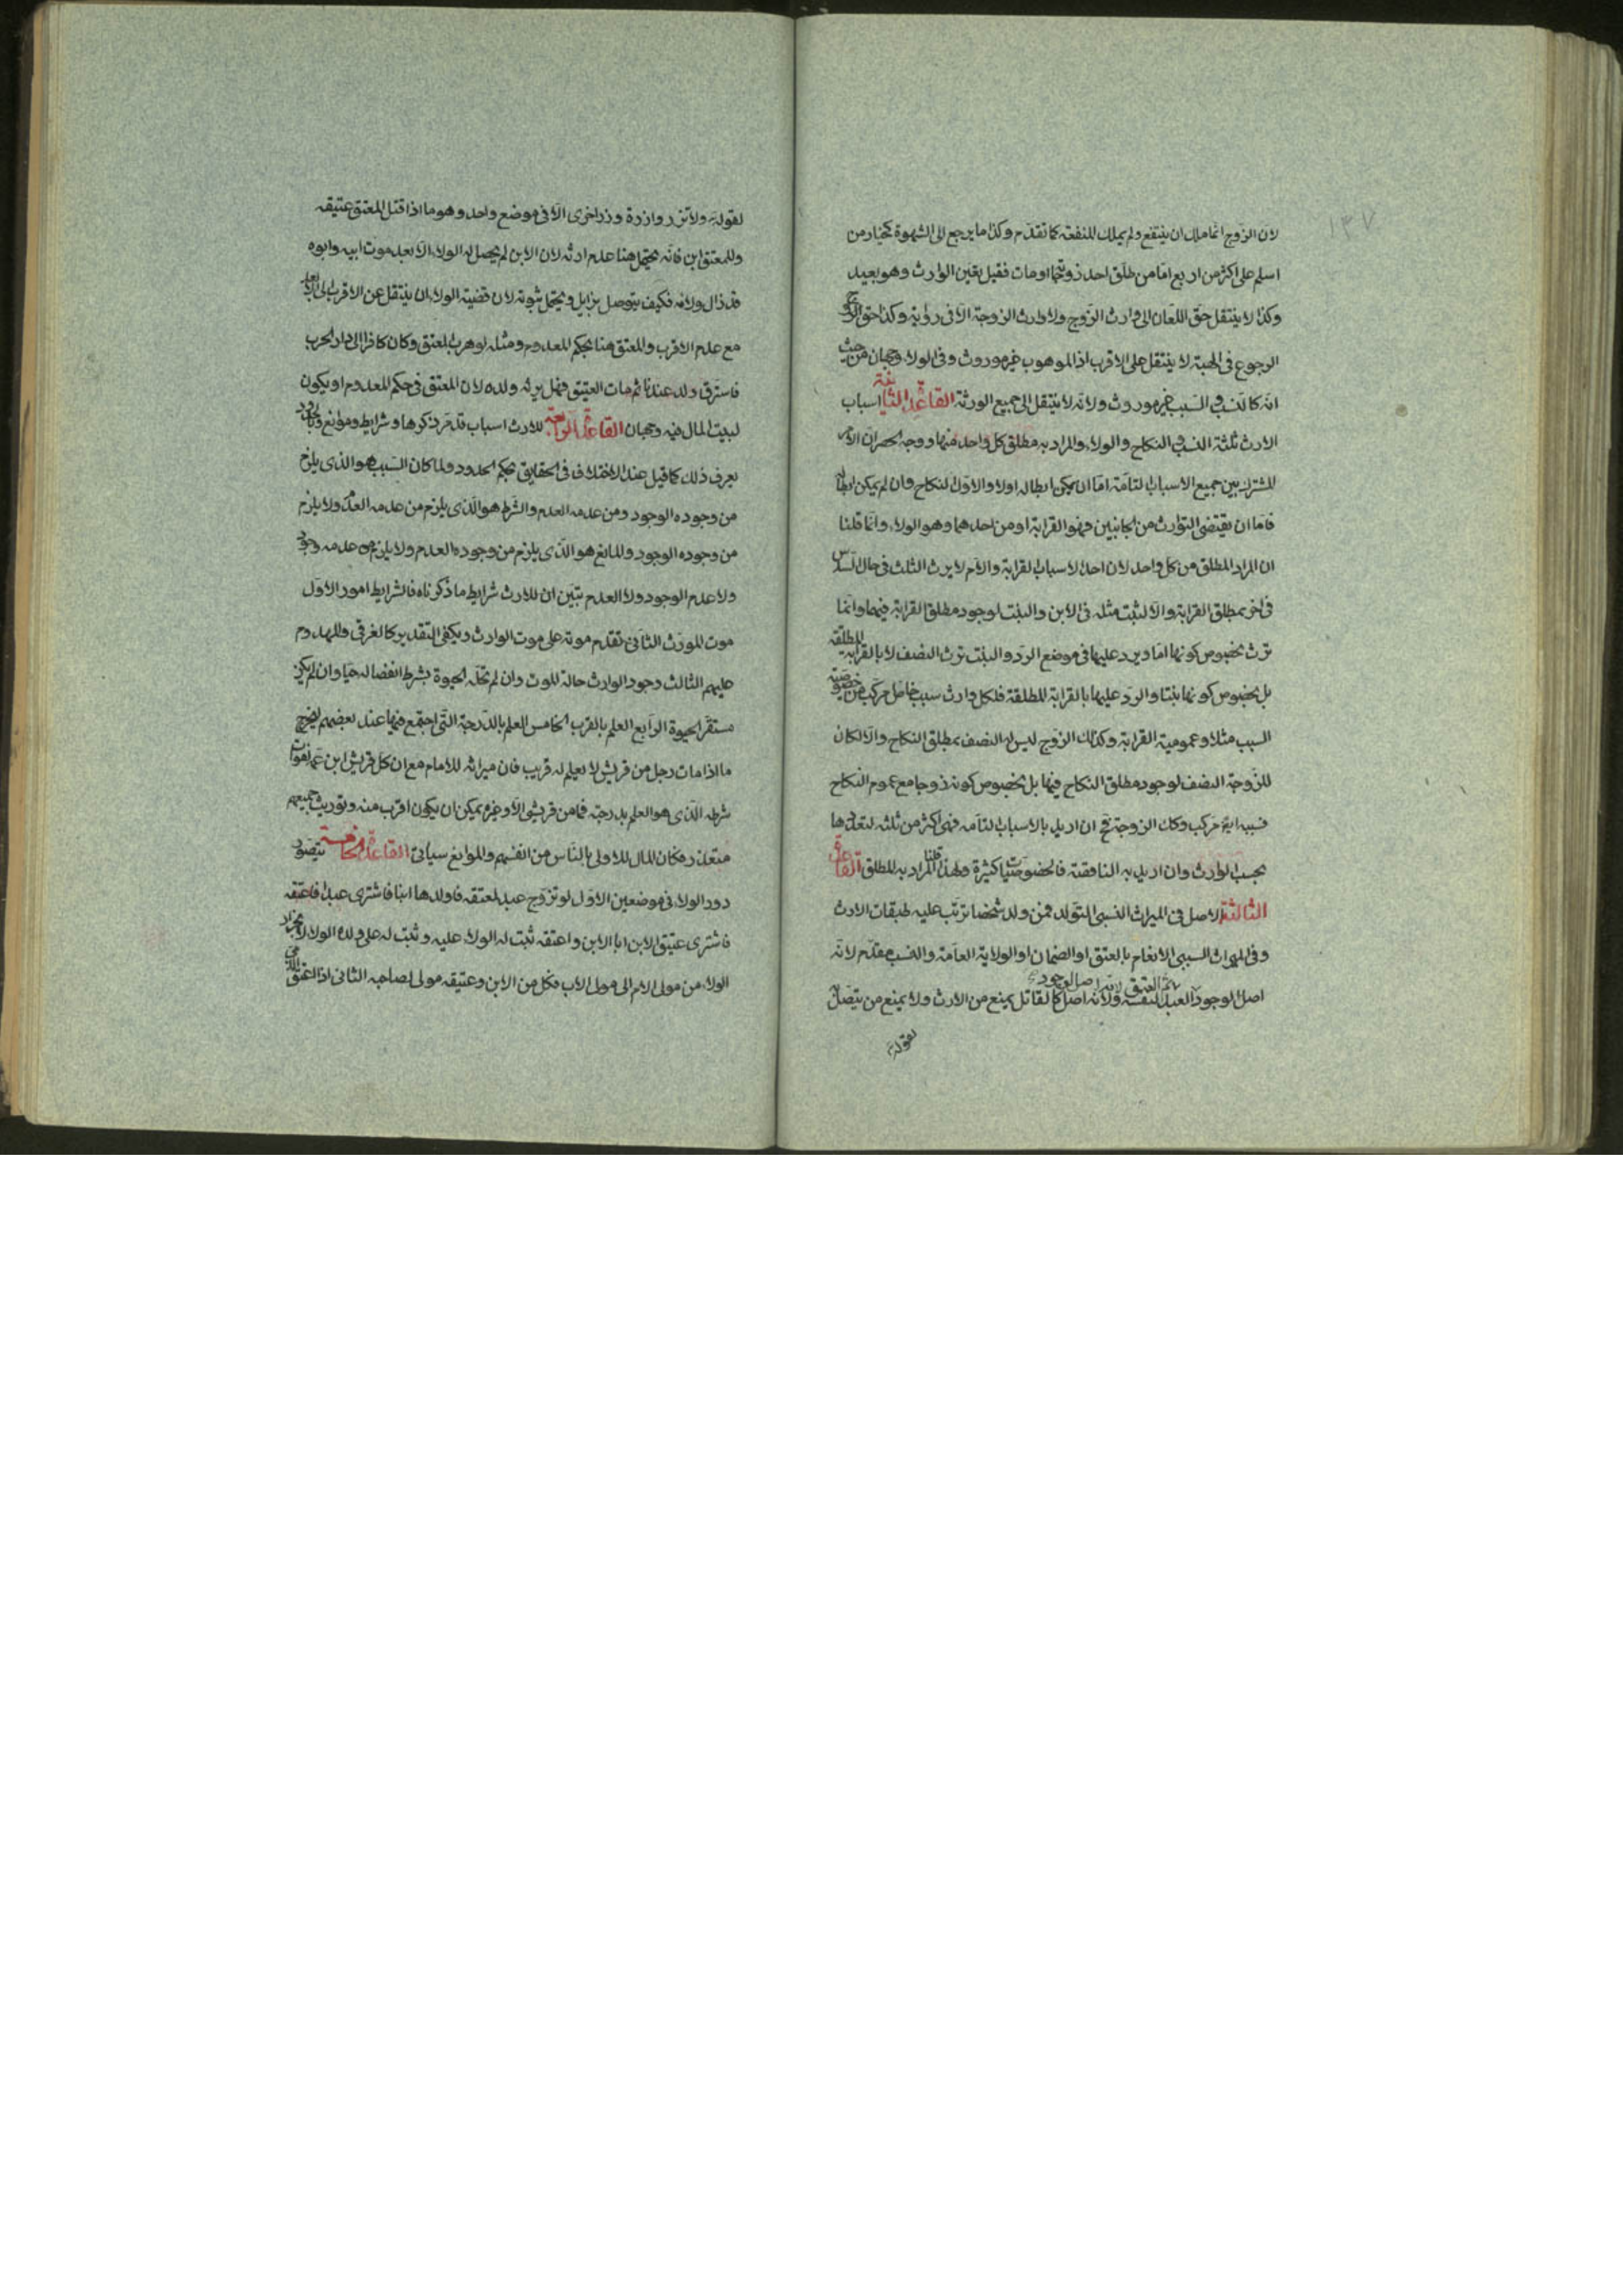 ١٣٧
لان الزوج انما ملك ان ينتفع ولم يملك المنفعة كما تقدم وكذا ما يرجع الى الشهوة كخيار من
اسلم على اكثر من اربع اما من طلق احد زوجتيه او مات فقيل يعين الوارث وهو بعيد
وكذا لا ينتقل حق اللعان الى وارث الزوج ولا وارث الزوجة الا في رواية وكذا حق
الرجوع في الهبة لا ينتقل على الاقرب اذ الموهوب غير موروث وفي الولاء وجهان من حيث
انه كالنسب والسبب غير موروث ولانه لا ينتقل الى جميع الورثة القاعدة الثانية اسباب
الارث ثلثة النسب والنكاح والولاء والمراد به مطلق كل واحد منها ووجه الحصر ان الامر
المشترك بين جميع الاسباب التامة اما ان يمكن ابطاله اولا والاول النكاح وان لم يمكن ابطاله
فاما ان يقتضى التوارث من الجانبين فهو القرابة او من احدهما وهو الولاء وانما قلنا
ان المراد المطلق من كل واحد لان احد الاسباب القرابة والام لا يرث الثلث في حال السدس
في اخر بمطلق القرابة والا لثبت مثله في الابن والبنت لوجود مطلق القرابة فيهما وانما
ترث بخصوص كونها اما ويرد عليها في موضع الرد والبنت ترث النصف لا بالقرابة المطلقة
بل بخصوص كونها بنتا والرد عليها بالقرابة المطلقة فلكل وارث سبب خاص مركب من خصوصية
السبب مثلا وعمومية القرابة وكذلك الزوج ليس له النصف بمطلق النكاح والا لكان
للزوجة النصف لوجود مطلق النكاح فيها بل بخصوص كونه زوجا مع عموم النكاح
فسببه ايضا مركب وكذا الزوجة فح ان اريد بالاسباب التامه فهي اكثر من ثلثه لتعددها
بحسب الوارث وان اريد به الناقصة فالخصوصيات كثيرة ولهذا قلنا المراد به المطلق القاعدة
الثالثة الاصل في الميراث النسبي التولد فمن ولد شخصا ترتب عليه طبقات الارث
وفي الميراث السببي الانعام بالعتق او الضمان او الولاية العامة والنسب مقدم لانه
ثم العتق لانه اصل لوجود
اصل الوجود العبد لنفسه ولانه اصل كالقاتل يمنع من الارث ولا يمنع من يتصل به
لقوله
لقوله ولا تزر وازرة وزر اخرى الا في موضع واحد وهو ما اذا قتل المعتق عتيقه
وللمعتق ابن فانه يحتمل هنا عدم ارثه لان الابن لم يحصل له الولاء الا بعد موت ابيه وابوه
قد زال ولاؤه فكيف يتوصل بزايل ويحتمل ثبوته لان قضية الولاء ان ينتقل عن الاقرب الى الابعد
مع عدم الاقرب والمعتق هنا بحكم المعدوم ومثله لو هرب المعتق وكان كافرا الى دار الحرب
فاسترق وله عندنا ثم مات العتيق فهل يرثه ولده لان المعتق في حكم المعدوم او يكون
لبيت المال فيه وجهان القاعدة الرابعة للارث اسباب قد مر ذكرها وشرايط وموانع
يعرف ذلك كما قيل عند الاختلاف في الحقايق بحكم الحدود ولما كان السبب هو الذي يلزم
من وجوده الوجود ومن عدمه العدم والشرط هو الذي يلزم من عدمه العدم ولا يلزم
من وجوده الوجود والمانع هو الذي يلزم من وجوده العدم ولا يلزم من عدمه وجود
ولا عدم الوجود ولا العدم تبين ان للارث شرايط ما ذكرناه فالشرايط امور الاول
موت المورث الثاني تقدم موته على موت الوارث ويكفي التقدير كالغرقى والمهدوم
عليهم الثالث وجود الوارث حالة الموت وان لم تحله الحيوة بشرط انفصاله حيا وان لم يكن
مستقر الحيوة الرابع العلم بالقرب الخامس العلم بالدرجة التي اجتمع فيها عند بعضهم ليخرج
ما اذا مات رجل من قريش لا يعلم له قريب فان ميراثه للامام مع ان كل قريش ابن عمه لفوات
شرطه الذي هو العلم بدرجته فما من قرشي الا وغيره يمكن ان يكون اقرب منه وتوريث جميعهم
متعذر فكان المال للاولى بالناس من انفسهم والموانع سياتي القاعدة الخامسة يتصور
دور الولاء في موضعين الاول لو تزوج عبد لمعتقه فاولدها ابنا فاشترى عبدا فاعتقه
فاشترى عتيق الابن ابا الابن واعتقه ثبت له الولاء عليه وثبت له على ولده الولاء لانجرار
الولاء من مولى الام الى مولى الاب فكل من الابن وعتيقه مولى لصاحبه الثاني اذا اعتق